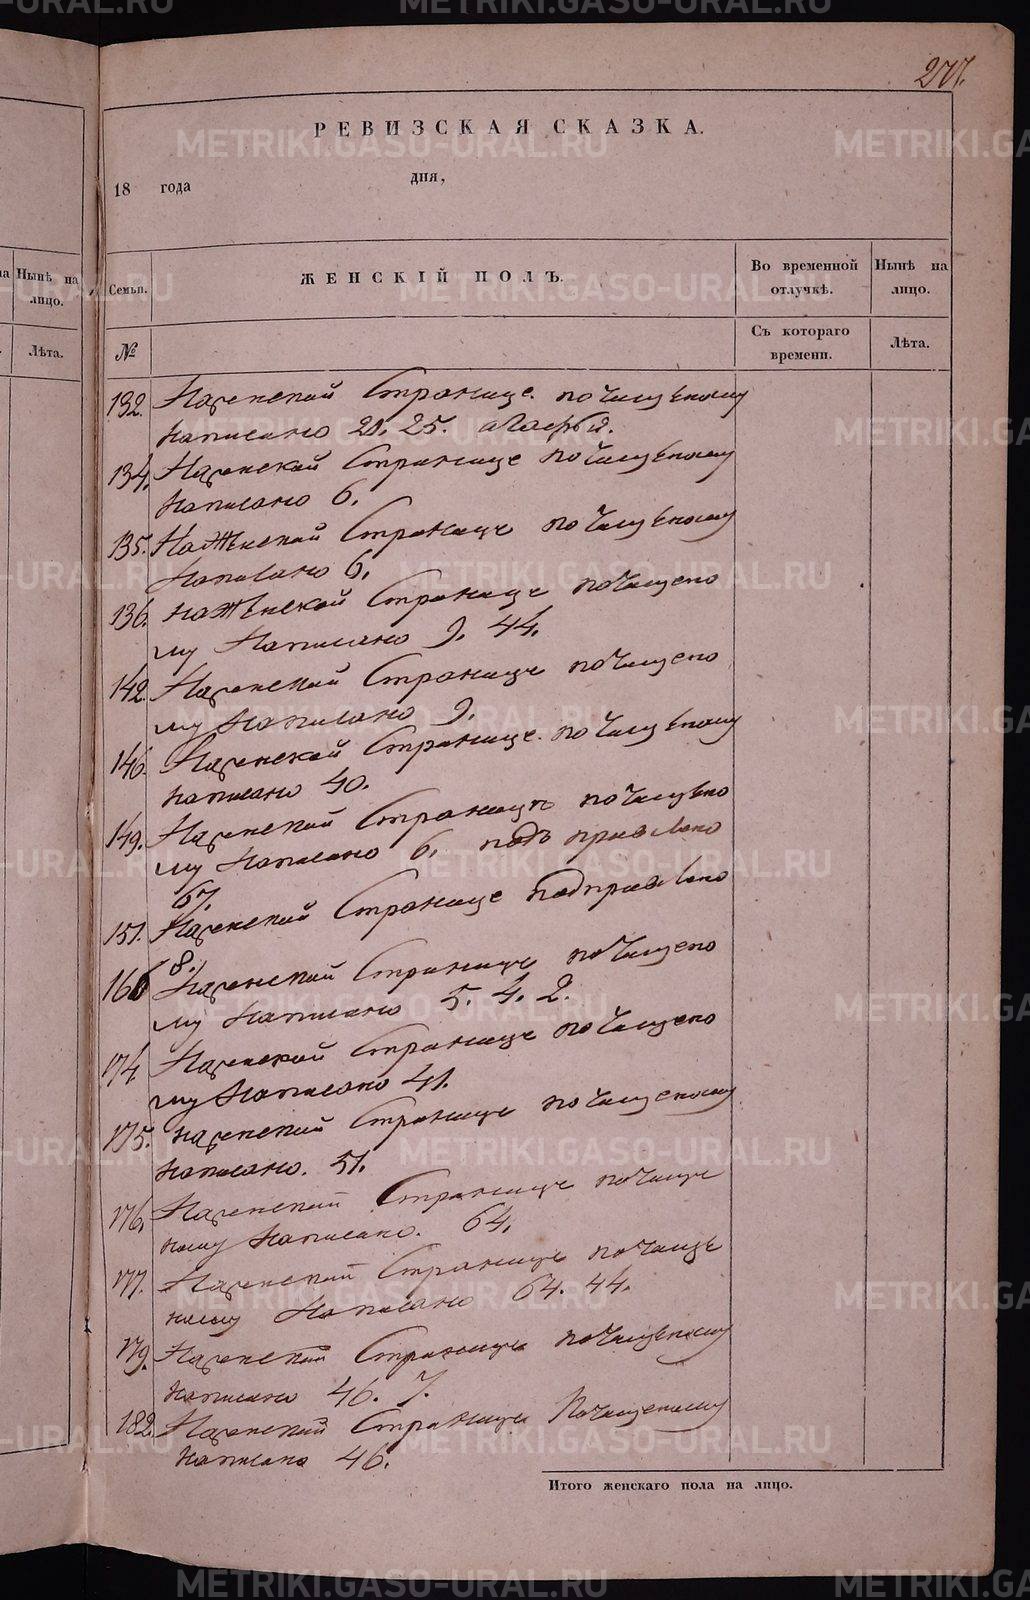 277.
РЕВИЗСКАЯ СКАЗКА.
18 года дня,
на Ныне на
лицо.
Лѣта.
Семьи. ЖЕНСКІЙ ПОЛЪ. Во временной отлучкѣ. Нынѣ на лицо.
№ Съ котораго времени. Лѣта.
132. На женской Странице почищеному
написано 20. 25.
134. На женской Странице почищеному
написано 6.
135. На женской Странице почищеному
написано 6.
136. на женской Странице почищено
му написано 9. 44.
142. На женской Странице почищено
му написано 9.
146. На женской Странице почищеному
написано 40.
149. На женской Страницѣ почищено
му написано 6. подъ правлено
67.
151. На женской Странице подправлено
8.
166 На женской Странице почищено
му написано 5. 4. 2.
174 На женской Странице почищено
му написано 41.
175. на женской Странице почищеному
написано. 51.
176. На женской Странице почище
ному написано. 64.
177. На женской Странице почище
ному написано 64. 44.
179. На женской Странице почищеному
написано 46. 7.
182. На женской Странице Почищеному
написано 46.
Итого женскаго пола на лицо.
METRIKI.GASO-URAL.RU